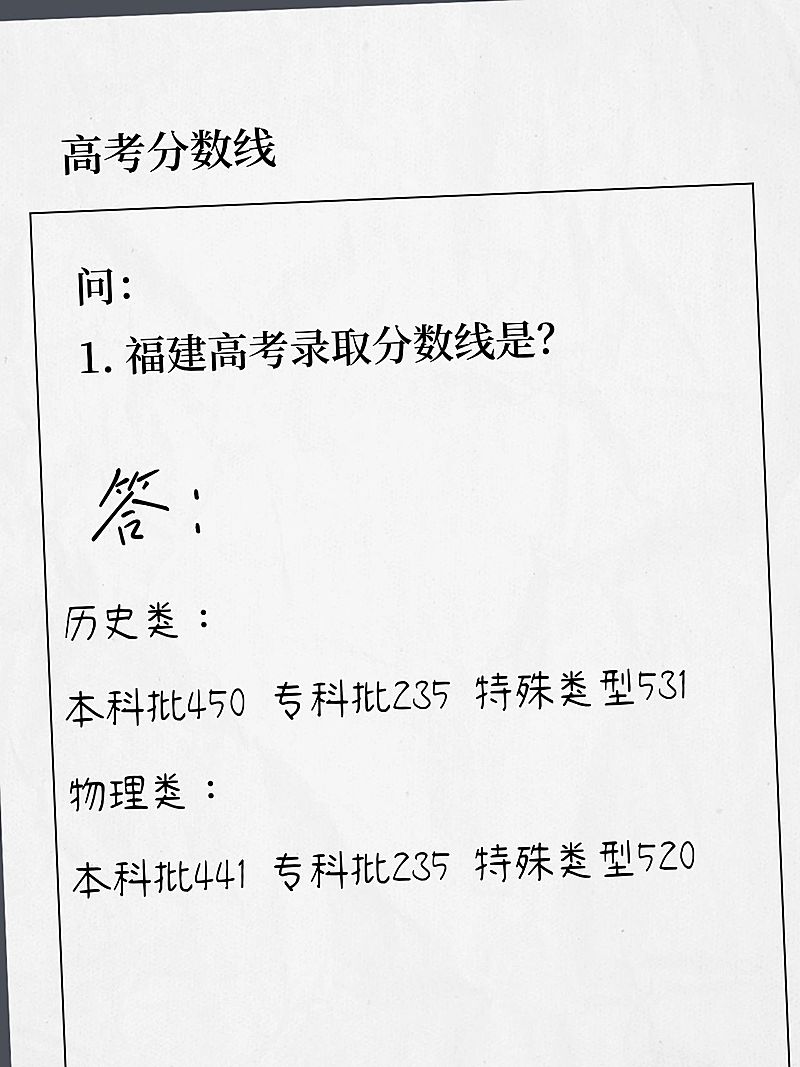 高考分数线
问：
1. 福建高考录取分数线是？
答：
历史类：
本科批450 专科批235 特殊类型531
物理类：
本科批441 专科批235 特殊类型520